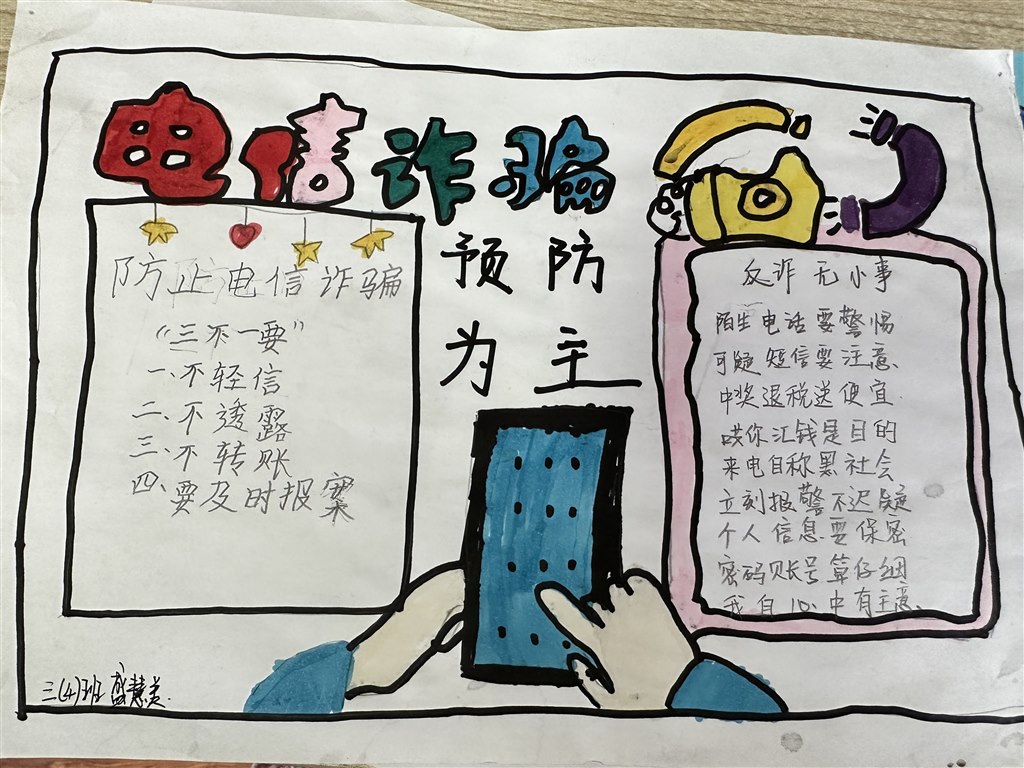 电信诈骗
预防
为主
防止电信诈骗
“三不一要”
一、不轻信
二、不透露
三、不转账
四、要及时报案
反诈无小事
陌生电话要警惕
可疑短信要注意
中奖退税送便宜
哄你汇钱是目的
来电自称黑社会
立刻报警不迟疑
个人信息要保密
密码账号算仔细
我自心中有主意、
三(4)班 慧美